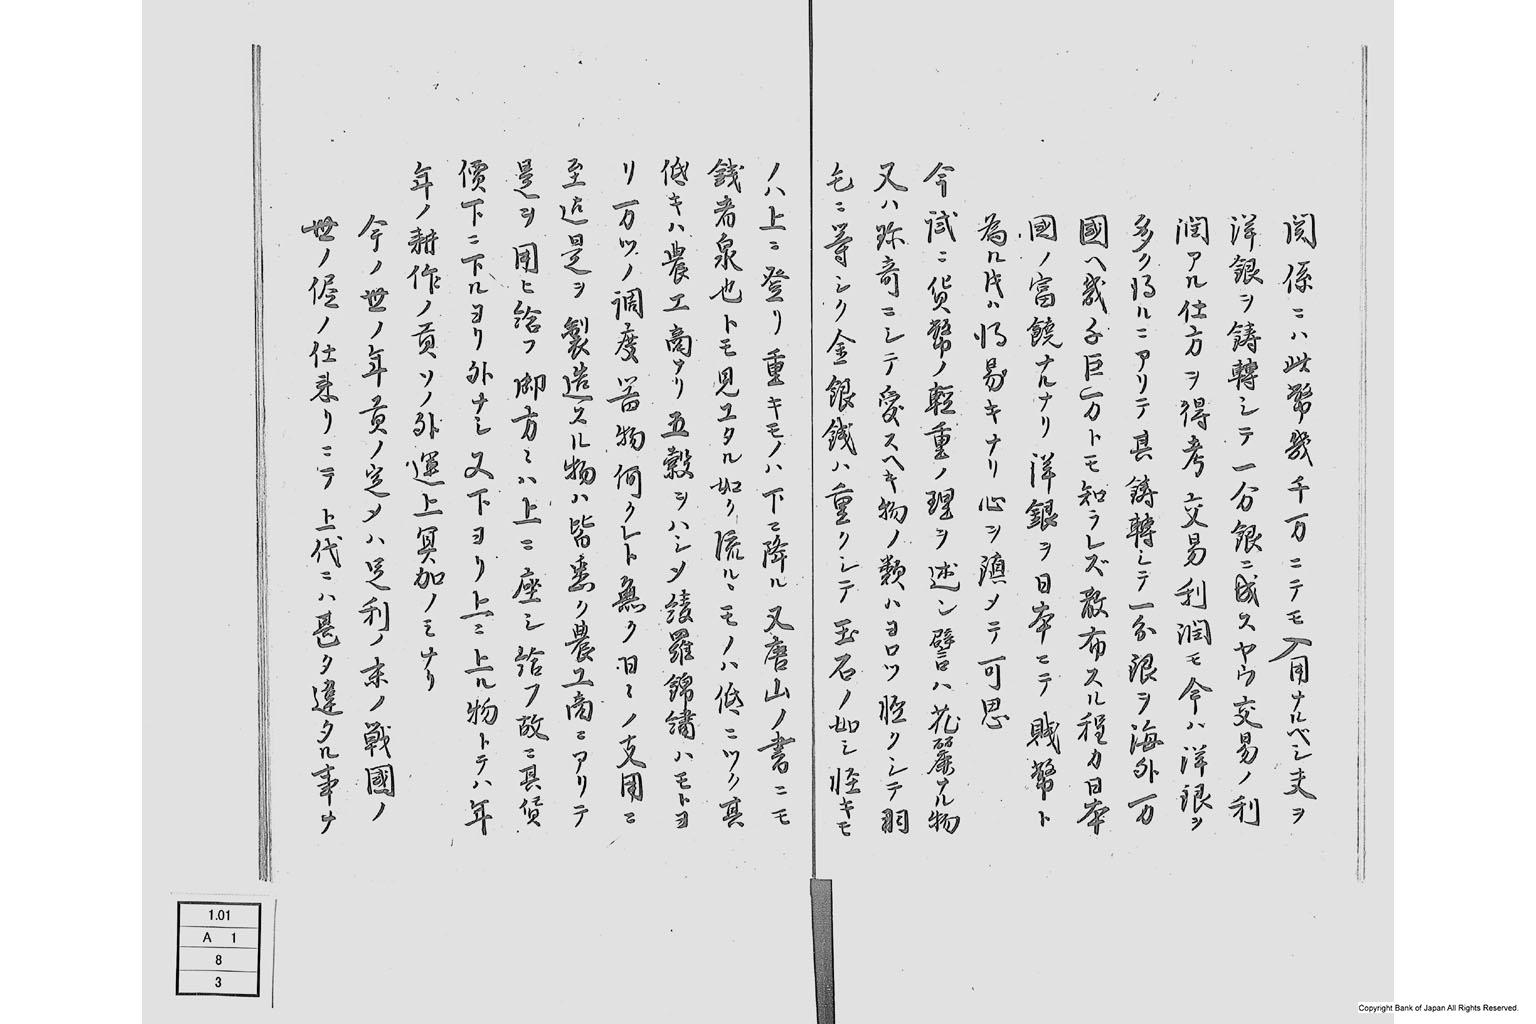 関係ニハ此幣幾千万ニテモ入用ナルベシ夫ヲ
洋銀ヲ鋳轉シテ一分銀ニ成スヤウ交易ノ利
潤アル仕方ヲ得考交易利潤モ今ハ洋銀ヲ
多ク得ルニアリテ其鋳轉シテ一分銀ヲ海外万
國ヘ幾千巨万トモ知ラレズ散布スル程カ日本
國ノ富饒ナルナリ洋銀ヲ日本ニテ賤幣ト
為ル時ハ得易キナリ心ヲ鎮メテ可思
今試ニ貨幣ノ輕重ノ理ヲ述ン譬ハ花麗ナル物
又ハ珍奇ニシテ愛スヘキ物ノ類ハヨロツ軽クシテ羽
毛ニ等シク金銀銭ハ重クシテ玉石ノ如シ軽キモ
ノハ上ニ登リ重キモノハ下ニ降ル又唐山ノ書ニモ
銭者泉也トモ見ユタル如ク流ルヽモノハ低ニツク其
低キハ農工商ナリ五穀ヲハシメ綾羅錦繍ハモトヨ
リ万ツノ調度器物何クレト無ク日ミノ支用ニ
至迄是ヲ製造スル物ハ皆悉ク農工商ニアリテ
是ヲ用ヒ給フ御方ミハ上ニ座シ給フ故ニ其貨
價下ニ下ルヨリ外ナシ又下ヨリ上ニ上ル物トテハ年
年ノ耕作ノ貢ソノ外運上冥加ノミナリ
今ノ世ノ年貢ノ定メハ足利ノ末ノ戦國ノ
世ノ俤ノ仕来リニテ上代ニハ甚タ違タル事ナ
1.01
A 1
8
3
Copyright Bank of Japan All Rights Reserved.